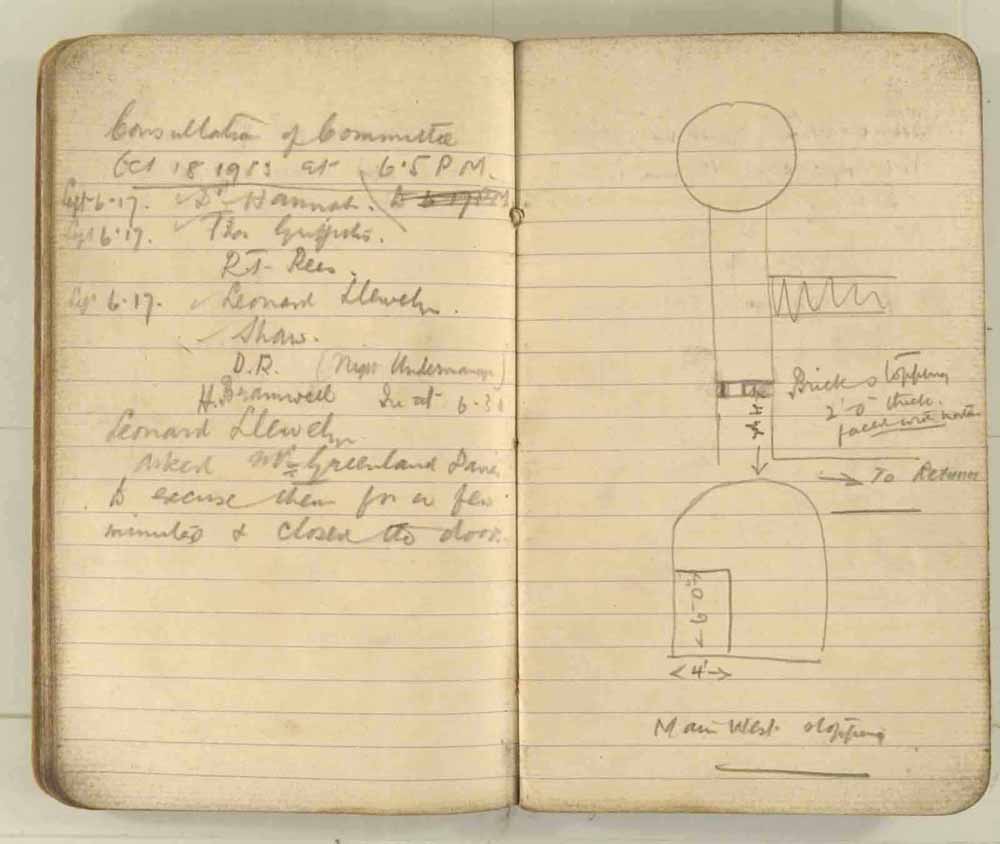 Consultation of Committee
Oct 18 1913 at 6.5 P M.
Left 6.17. Dr Hannah.
Left 6.17. Thos Griffiths.
R.T. Rees.
Left 6.17. Leonard Llewelyn.
Shaw.
D.R. (Night Undermanager)
H. Bramwell In at 6.30
Leonard Llewelyn
asked Mr Greenland Davies
to excuse them for a few
minutes & closed the door.
Brick stopping
2'-0" thick.
faced with
To Return
6'-0"
4'
Main West stopping